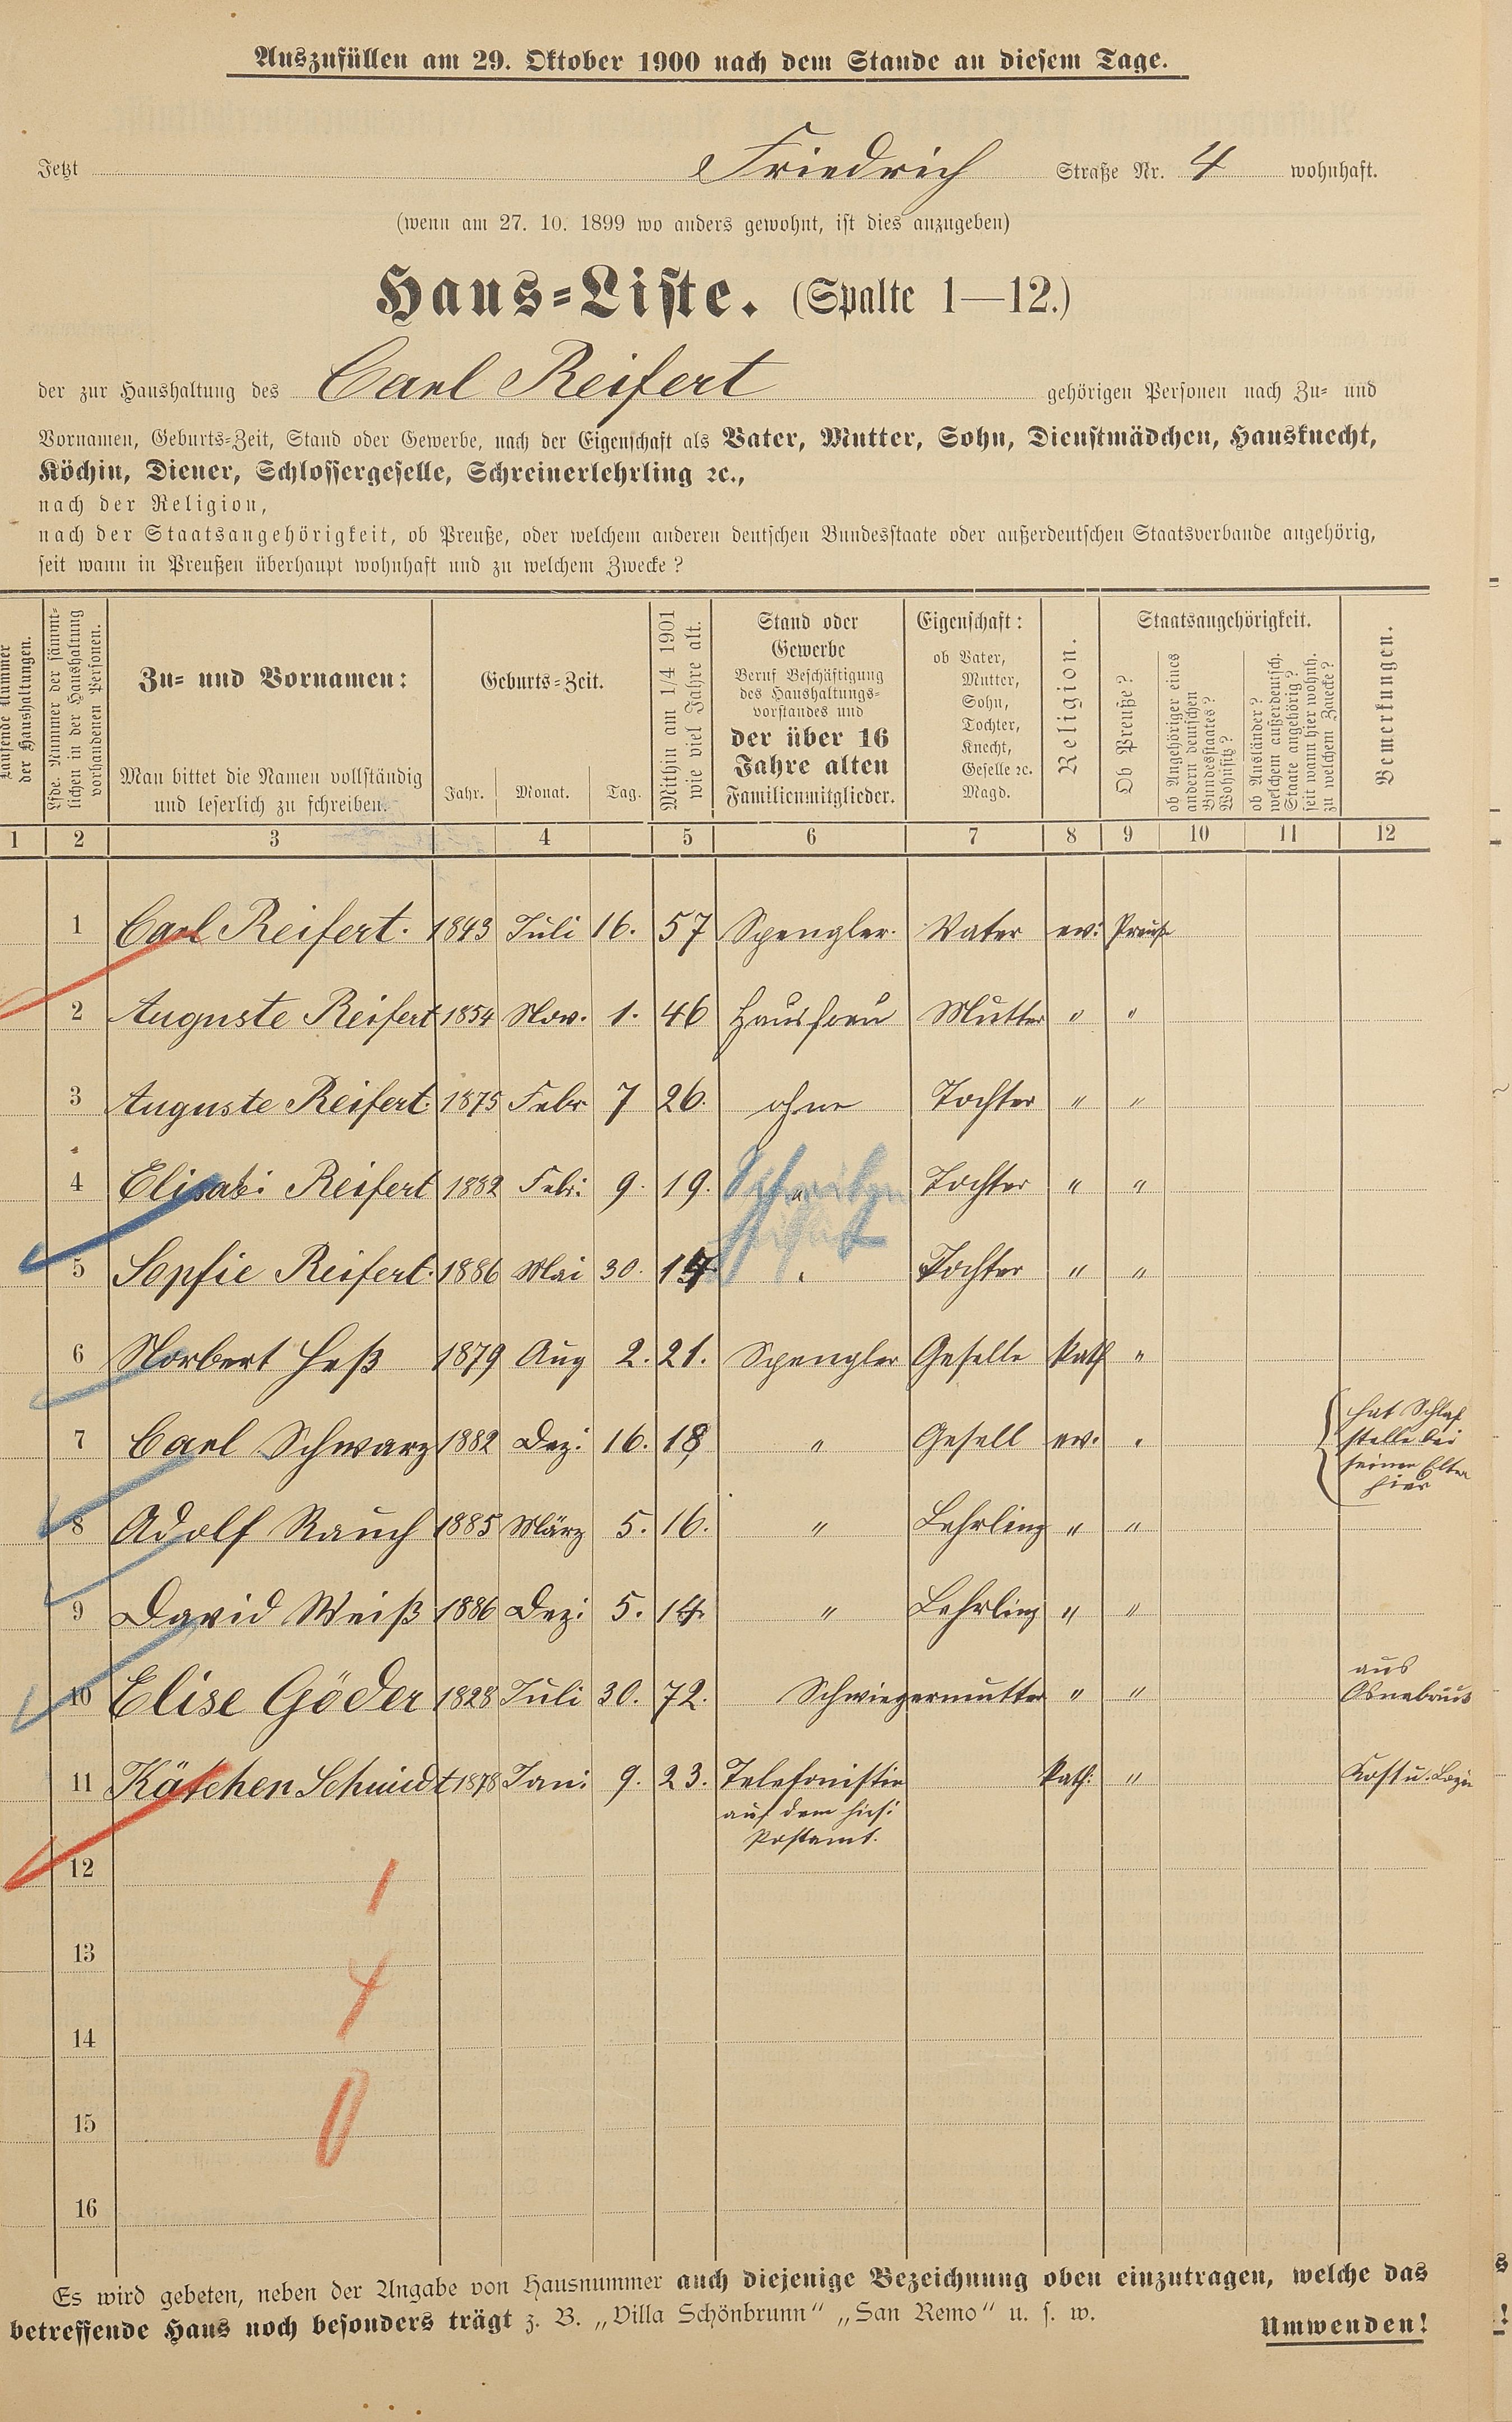 Auszufüllen am 29. Oktober 1900 nach dem Stande an diesem Tage.
Jetzt Friedrich Straße Nr. 4 wohnhaft.
(wenn am 27. 10. 1899 wo anders gewohnt, ist dies anzugeben)
Haus-Liste. (Spalte 1—12.)
der zur Haushaltung des Carl Reifert gehörigen Personen nach Zu- und
Vornamen, Geburts-Zeit, Stand oder Gewerbe, nach der Eigenschaft als Vater, Mutter, Sohn, Dienstmädchen, Hausknecht,
Köchin, Diener, Schlossergeselle, Schreinerlehrling ꝛc.,
nach der Religion,
nach der Staatsangehörigkeit, ob Preuße, oder welchem anderen deutschen Bundesstaate oder außerdeutschen Staatsverbande angehörig,
seit wann in Preußen überhaupt wohnhaft und zu welchem Zwecke?
Laufende Nummer
der Haushaltungen.
Lfde. Nummer der sämmt-
lichen in der Haushaltung
vorhandenen Personen.
Zu- und Vornamen:
Man bittet die Namen vollständig
und leserlich zu schreiben.
Geburts-Zeit.
Jahr. Monat. Tag.
Mithin am 1/4 1901
wie viel Jahre alt.
Stand oder
Gewerbe
Beruf Beschäftigung
des Haushaltungs-
vorstandes und
der über 16
Jahre alten
Familienmitglieder.
Eigenschaft:
ob Vater,
Mutter,
Sohn,
Tochter,
Knecht,
Geselle ꝛc.
Magd.
Religion.
Staatsangehörigkeit.
Ob Preuße?
ob Angehöriger eines
andern deutschen
Bundesstaates?
Wohnsitz?
ob Ausländer?
welchem außerdeutsch.
Staate angehörig?
seit wann hier wohnh.
zu welchem Zwecke?
Bemerkungen.
1 2 3 4 5 6 7 8 9 10 11 12
1 Carl Reifert. 1843 Juli 16. 57 Spengler. Vater ev: Preuß
2 Auguste Reifert 1854 Nov. 1. 46 Hausfrau Mutter " "
3 Auguste Reifert. 1875 Febr 7 26. ohne Tochter " "
4 Elisab: Reifert 1882 Feb: 9. 19. " Tochter " "
5 Sopfie Reifert. 1886 Mai 30. 14 " Tochter " "
6 Norbert Heß 1879 Aug 2. 21. Spengler Geselle kath "
7 Carl Schwarz 1882 Dez: 16. 18 " Gesell ev. "
hat Schlaf
stelle bei
seinen Eltern
hier
8 Adolf Rauch 1885 März 5. 16. " Lehrling " "
9 David Weiß 1886 Dez: 5. 14. " Lehrling " "
10 Elise Göder 1828 Juli 30. 72. Schwiegermutter " "
aus
Osnabrück
11 Kätchen Schmidt 1878 Jan: 9. 23. Telefonistin kath: " Kost u. Logis
auf dem hies:
Postamt.
12
1
13
4
14
15
0
16
Es wird gebeten, neben der Angabe von Hausnummer auch diejenige Bezeichnung oben einzutragen, welche das
betreffende Haus noch besonders trägt z. B. „Villa Schönbrunn" „San Remo" u. s. w.
Umwenden!